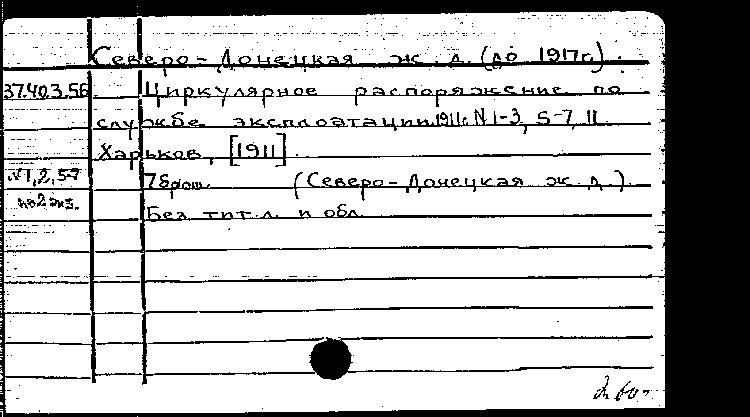 Северо-Донецкая ж.д. (до 1917г.).
37.40.3.56 Циркулярное распоряжение по
службе эксплоатации 1911г. N 1-3, 5-7, 11.
Харьков, [1911].
N1,2,5-7 7 брош. (Северо-Донецкая ж.д.).
по 2 экз.
Без тит.л. и обл.